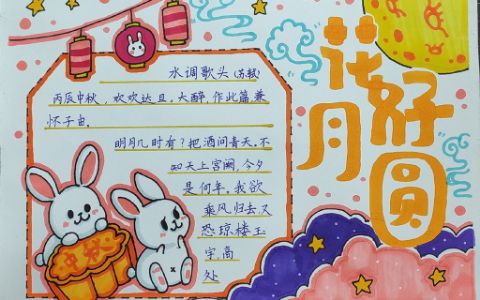 花好
月圆
水调歌头(苏轼)
丙辰中秋，欢欢达旦，大醉，作此篇兼
怀子由。
明月几时有？把酒问青天。不
知天上宫阙，今夕
是何年。我欲
乘风归去，又
恐琼楼玉
宇，高
处
中秋